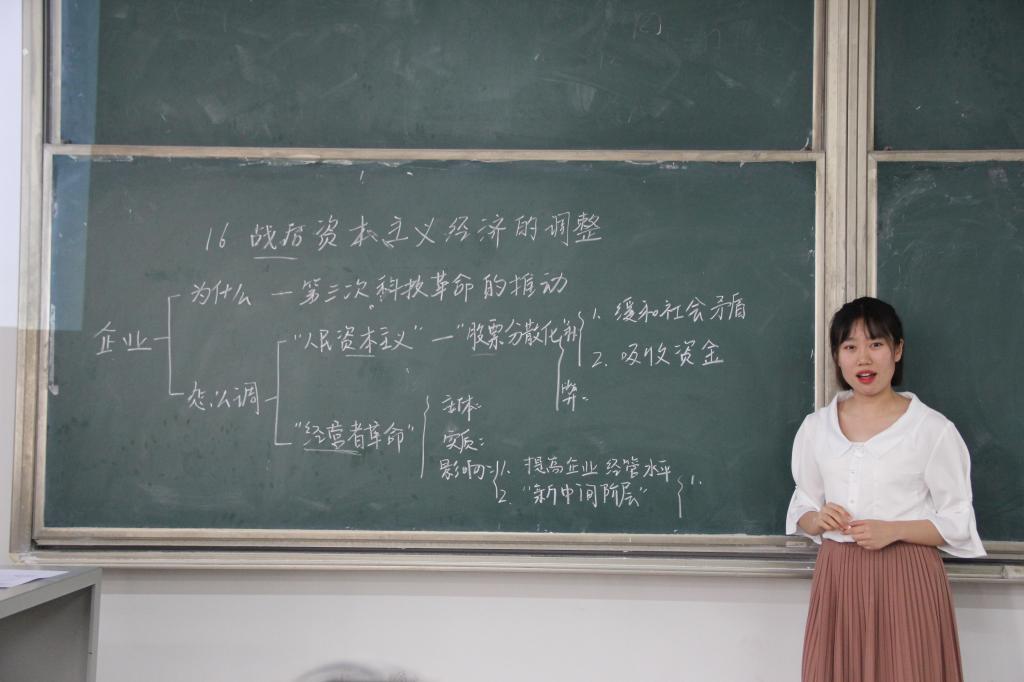 16 战后资本主义经济的调整
为什么 — 第三次科技革命的推动
企业
"人民资本主义" — "股票分散化"利
1. 缓和社会矛盾
2. 吸收资金
弊:
怎么调
"经营者革命"
主体:
实质:
影响: 1. 提高企业经管水平
2. "新中间阶层"
1.